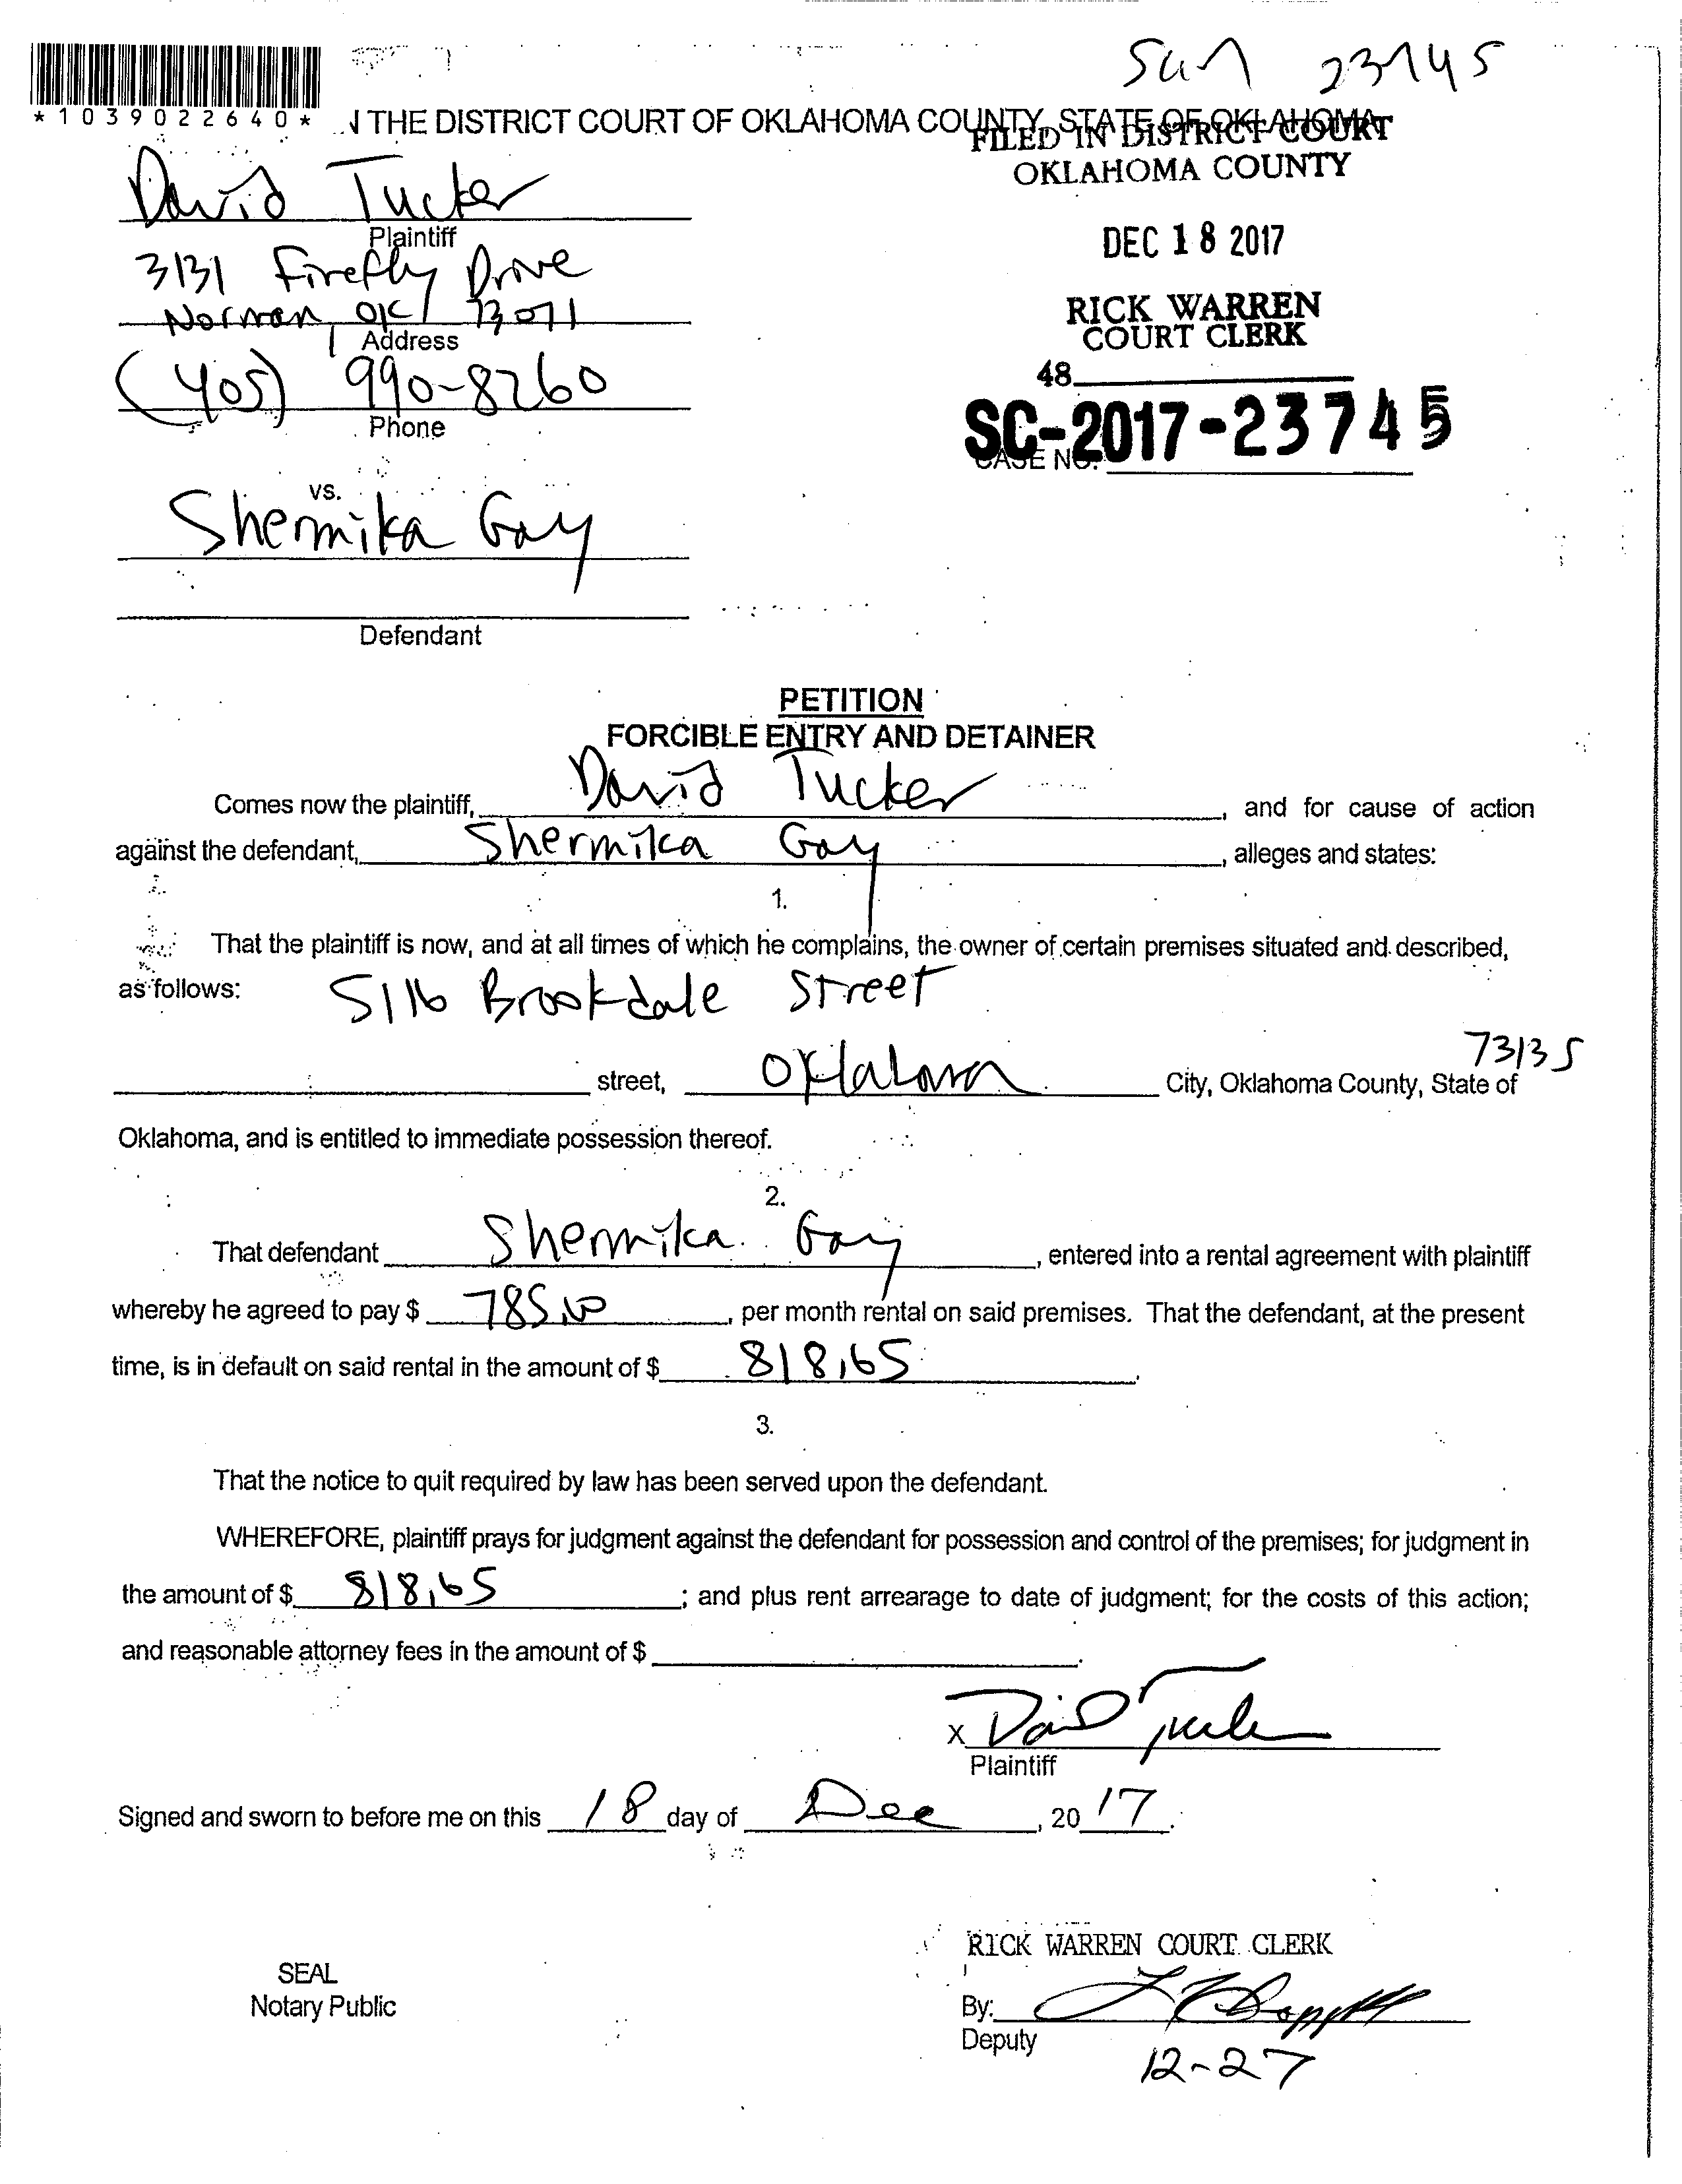 23745
*1039022640*
N THE DISTRICT COURT OF OKLAHOMA COUNTY, STATE OF OKLAHOMA
FILED IN DISTRICT COURT
OKLAHOMA COUNTY
David Tucker
Plaintiff
DEC 18 2017
3131 Firefly Drive
Norman, OK 73071
Address
RICK WARREN
COURT CLERK
(405) 990-8260
Phone
48
SC-2017-23745
CASE NO.
vs.
Shermika Gay
Defendant
PETITION
FORCIBLE ENTRY AND DETAINER
Comes now the plaintiff, David Tucker, and for cause of action
against the defendant, Shermika Gay, alleges and states:
1.
That the plaintiff is now, and at all times of which he complains, the owner of certain premises situated and described,
as follows: 5116 Brookdale Street
73135
street, Oklahoma City, Oklahoma County, State of
Oklahoma, and is entitled to immediate possession thereof.
2.
That defendant Shermika Gay, entered into a rental agreement with plaintiff
whereby he agreed to pay $ 785.00, per month rental on said premises. That the defendant, at the present
time, is in default on said rental in the amount of $ 818.65.
3.
That the notice to quit required by law has been served upon the defendant.
WHEREFORE, plaintiff prays for judgment against the defendant for possession and control of the premises; for judgment in
the amount of $ 818.65; and plus rent arrearage to date of judgment; for the costs of this action;
and reasonable attorney fees in the amount of $
X David Tucker
Plaintiff
Signed and sworn to before me on this 18 day of Dec, 2017.
RICK WARREN COURT CLERK
SEAL
Notary Public
By:
Deputy
12-27